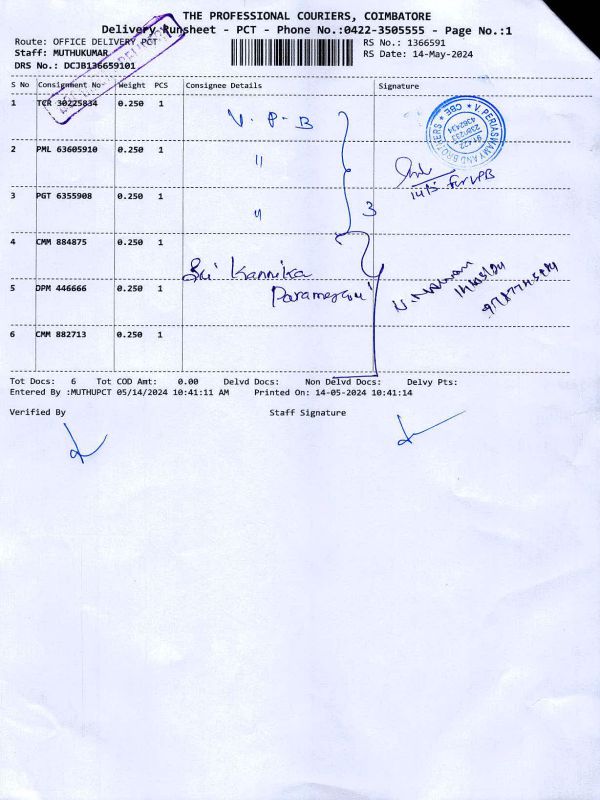 THE PROFESSIONAL COURIERS, COIMBATORE
Delivery Runsheet - PCT - Phone No.:0422-3505555 - Page No.:1
Route: OFFICE DELIVERY PCT
RS No.: 1366591
Staff: MUTHUKUMAR
RS Date: 14-May-2024
DRS No.: DCJB136659101
S No Consignment No Weight PCS Consignee Details Signature
1 TCR 30225834 0.250 1 V. P. B
V. PERIASWAMY AND BROTHERS * CBE *
2 PML 63605910 0.250 1 "
14/5 For VPB
3 PGT 6355908 0.250 1 "
3
4 CMM 884875 0.250 1
Sri Kannika
5 DPM 446666 0.250 1
6 CMM 882713 0.250 1
Tot Docs: 6 Tot COD Amt: 0.00 Delvd Docs: Non Delvd Docs: Delvy Pts:
Entered By :MUTHUPCT 05/14/2024 10:41:11 AM Printed On: 14-05-2024 10:41:14
Verified By Staff Signature